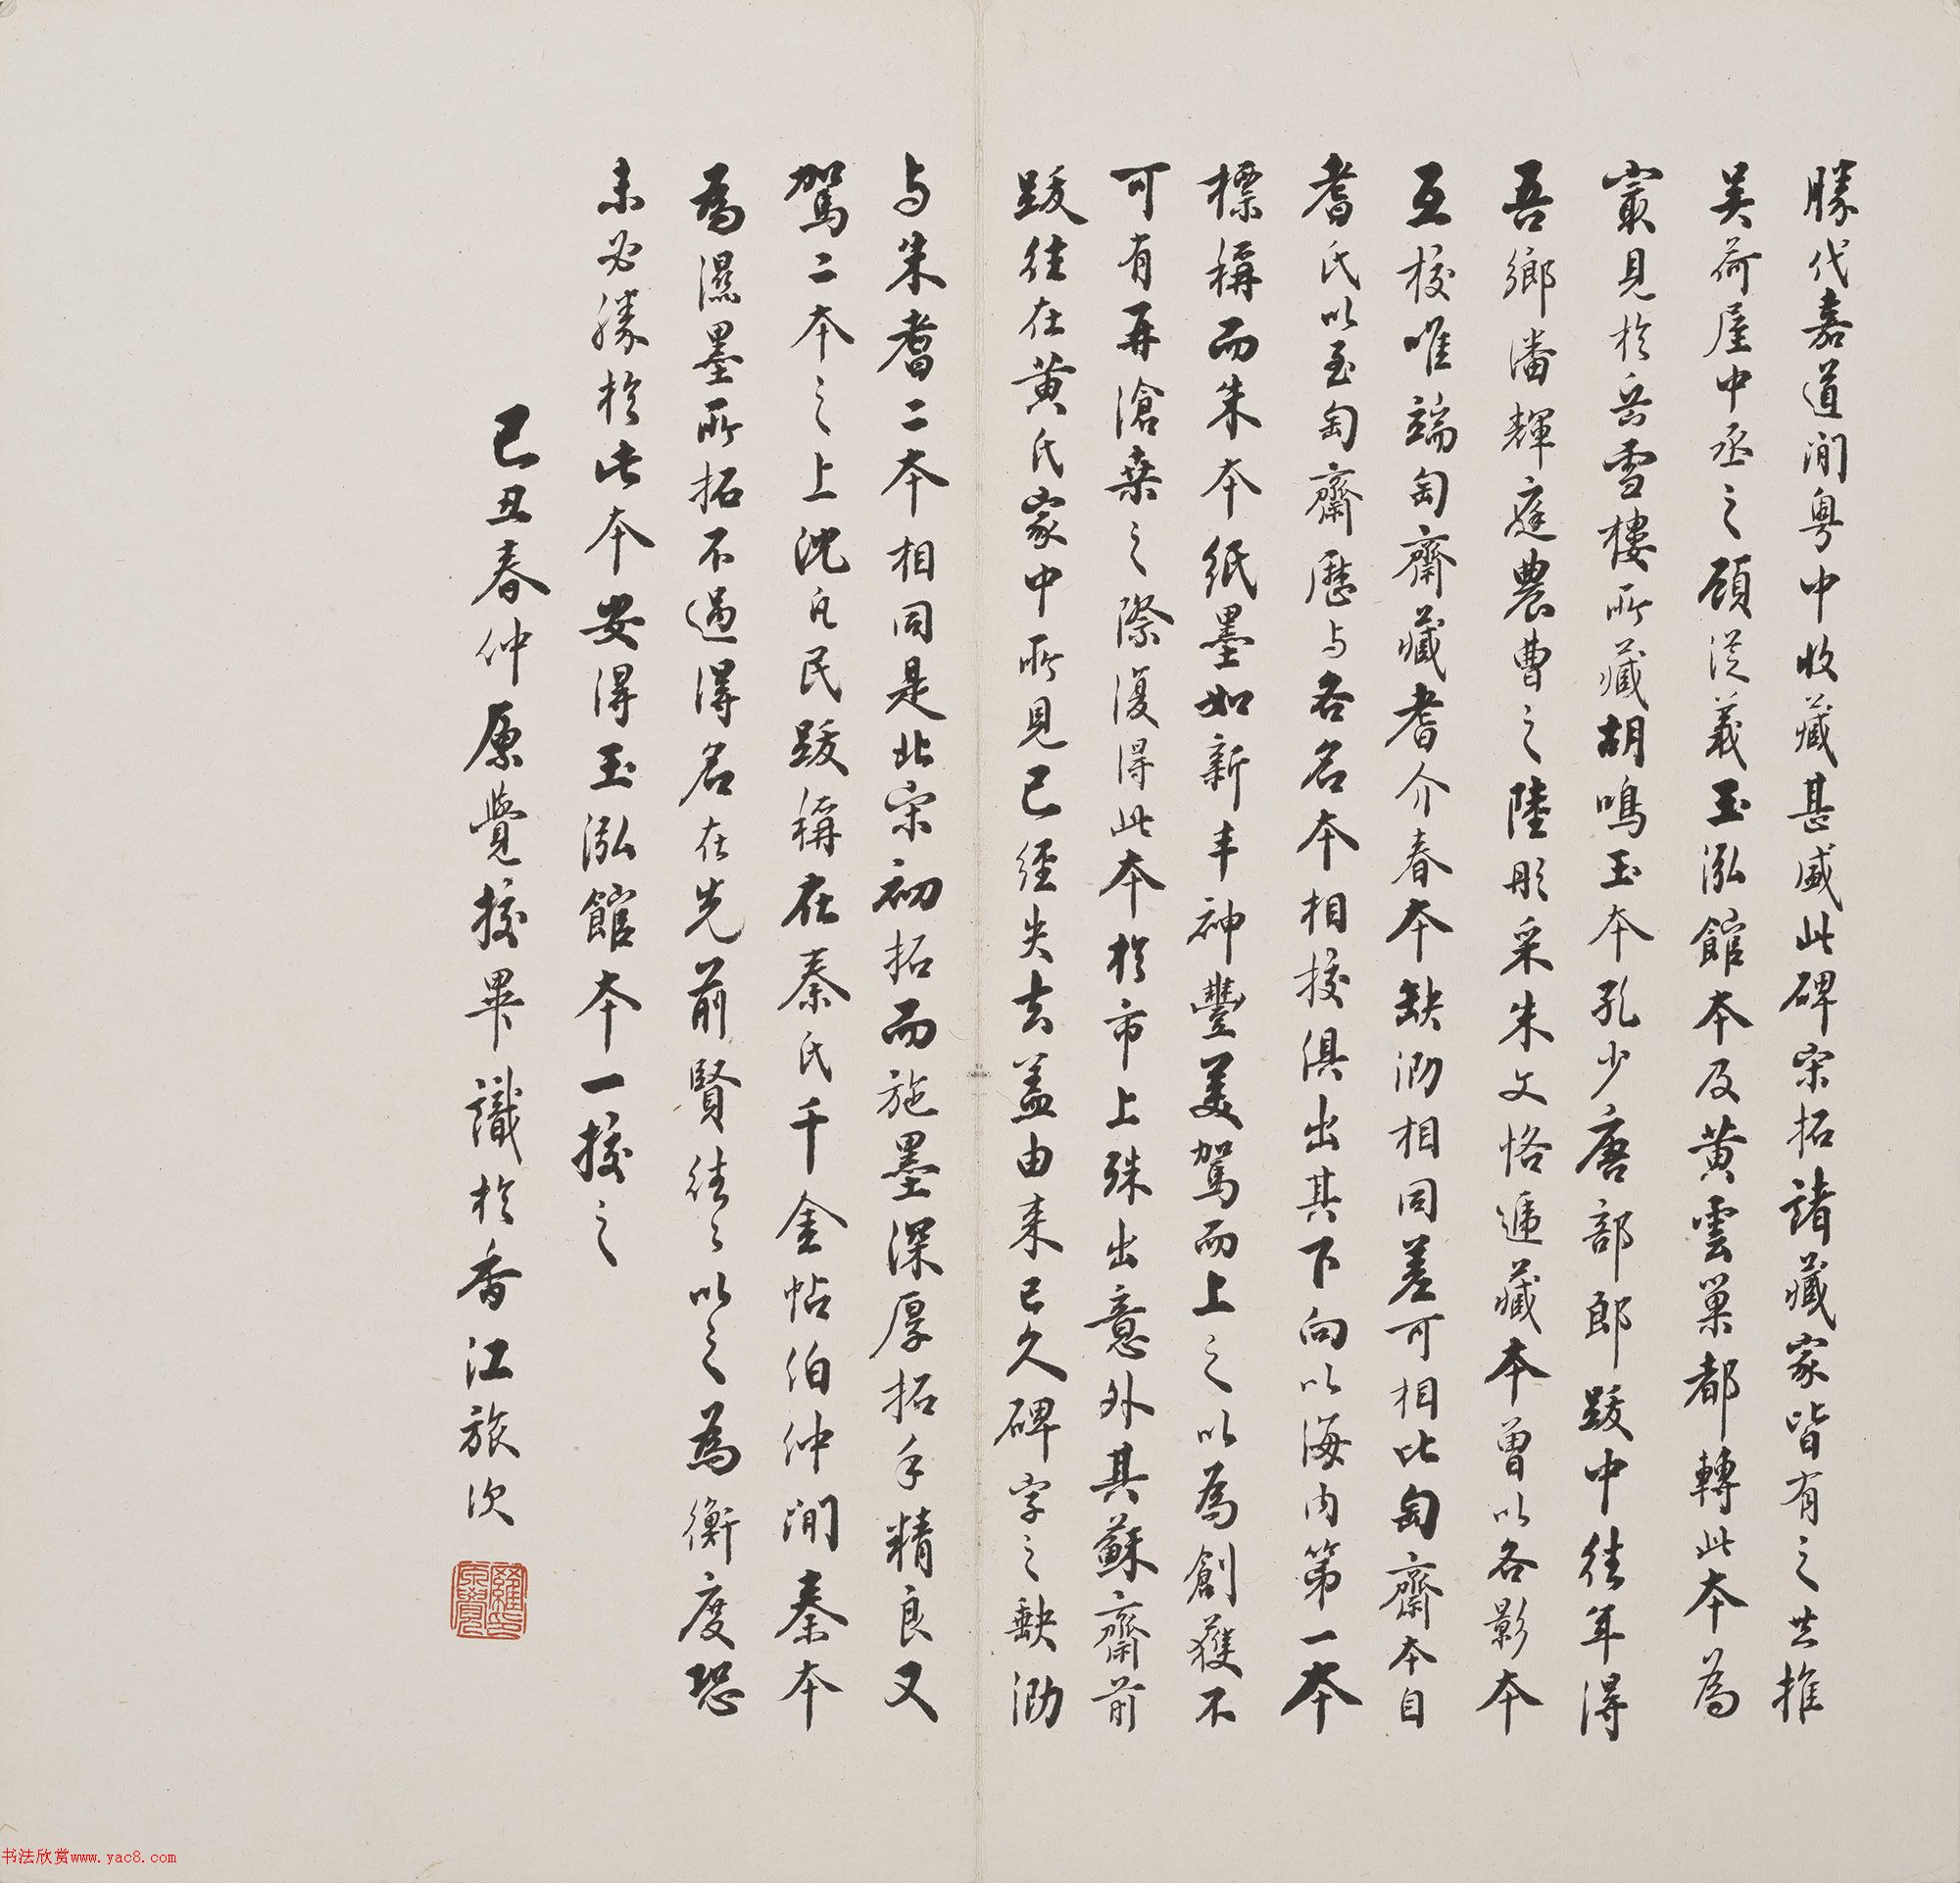 勝代嘉道間粵中收藏甚盛此碑宋拓諸藏家皆有之共推
吴荷屋中丞之顧從義玉泓館本及黄雲巢都轉此本為
冣見於岳雪樓所藏胡鳴玉本孔少唐部郎跋中往年得
吾鄉潘輝庭農曹之陸彤采朱文恪遞藏本曾以各影本
互挍唯端匋齋藏耆介春本缺泐相同差可相比匋齋本自
耆氏以至匋齋歷与各名本相挍俱出其下向以海内第一本
標稱而朱本紙墨如新丰神豐美駕而上之以為創獲不
可有再滄桑之際復得此本於市上殊出意外其蘇齋前
跋往在黄氏家中所見已經失去盖由来已久碑字之缺泐
与朱耆二本相同是北宋初拓而施墨深厚拓手精良又
駕二本之上沈凡民跋稱在秦氏千金帖伯仲間秦本
為濕墨所拓不過得名在先前賢往々以之為衡度恐
未必勝於此本安得玉泓館本一挍之
已丑春仲原覺挍畢識於香江旅次
羅原覺
书法欣赏www.yac8.com